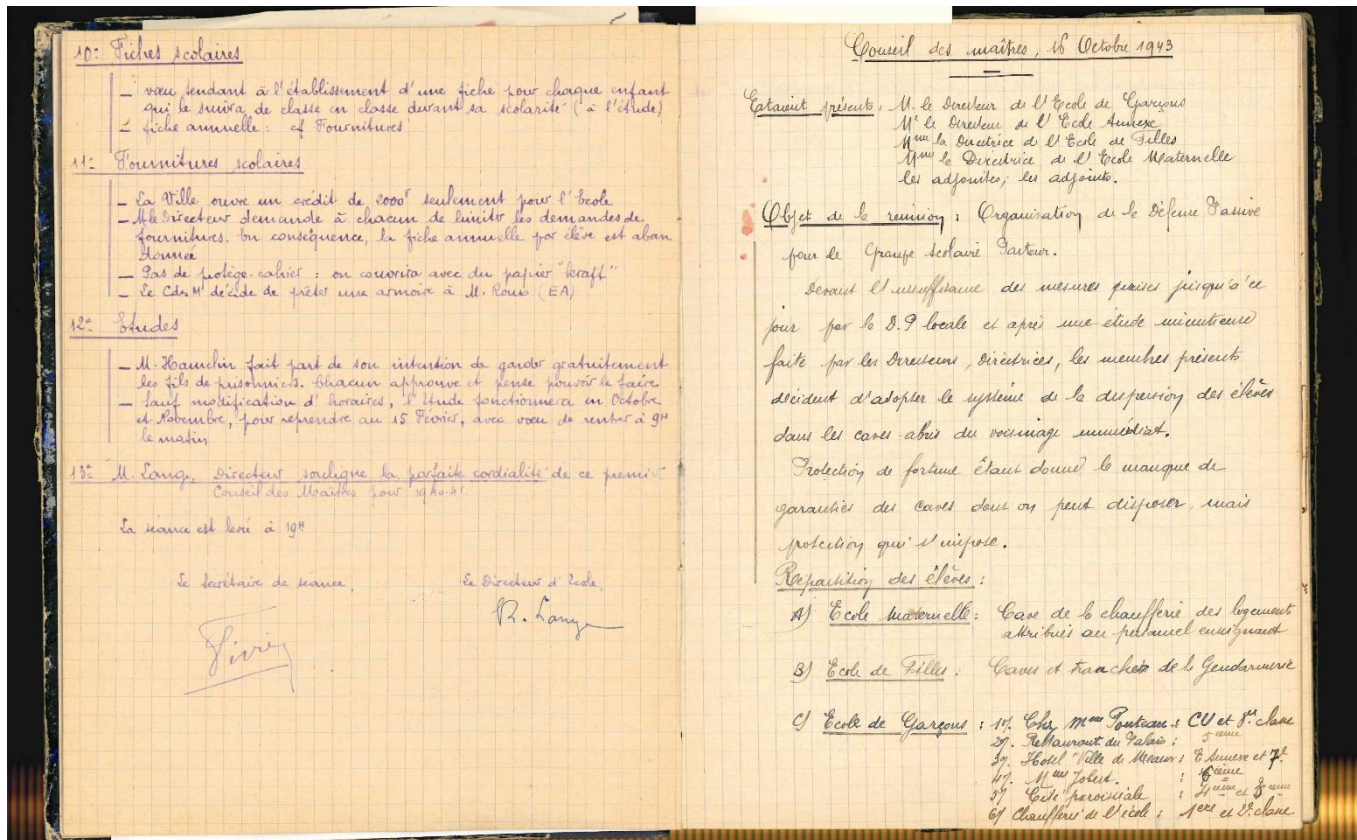 10= Fiches scolaires
— vœu tendant à l'établissement d'une fiche pour chaque enfant
qui le suivra de classe en classe durant sa scolarité (à l'étude)
— fiche annuelle : cf Fournitures
11= Fournitures scolaires
— La Ville ouvre un crédit de 2000f seulement pour l'école
— M le Directeur demande à chacun de limiter les demandes de
fournitures. En conséquence, la fiche annuelle par élève est aban
donnée
— Pas de protège-cahier : on couvrira avec du papier "kraft"
— Le CdsM décide de prêter une armoire à M. (EA)
12= Etudes
— M. Hamelin fait part de son intention de garder gratuitement
les fils de prisonniers. Chacun approuve et pense pouvoir le faire
— Sauf modification d'horaires, l'étude fonctionnera en Octobre
et Novembre, pour reprendre au 15 Février, avec vœu de rentrer à 9H
le matin
13= M. Lange, Directeur souligne la parfaite cordialité de ce premier
Conseil des Maîtres pour 1940-41.
La séance est levée à 19H
Le Secrétaire de séance
Le Directeur d'Ecole
R. Lange
Conseil des maîtres, 16 Octobre 1943
Etaient présents : M. le Directeur de l'Ecole de Garçons
Mr le Directeur de l'Ecole Annexe
Mme la Directrice de l'Ecole de Filles
Mme la Directrice de l'Ecole Maternelle
les adjointes, les adjoints.
Objet de la réunion : Organisation de la Défense Passive
pour le Groupe scolaire Pasteur.
Devant l'insuffisance des mesures prises jusqu'à ce
jour par la D.P locale et après une étude minutieuse
faite par les Directeurs, Directrices, les membres présents
décident d'adopter le système de la dispersion des élèves
dans les caves-abris du voisinage immédiat.
Protection de fortune étant donné le manque de
garanties des caves dont on peut disposer, mais
protection qui s'impose.
Répartition des élèves :
A) Ecole maternelle : Cave de la chaufferie des logements
attribués au personnel enseignant
B) Ecole de Filles : Caves et tranchées de la Gendarmerie
C) Ecole de Garçons : 1°/. Chez Mme Ponteau : CU et 8e classe
2°/. Restaurant du Palais : 5ième
3°/. Hotel "Ville de Meaux : E Annexe et 7e
4°/. Mme Jobert : 6ième
5°/ Cité paroissiale : 4ième et 3ième
6°/ Chaufferie de l'école : 1ere et 2e classe